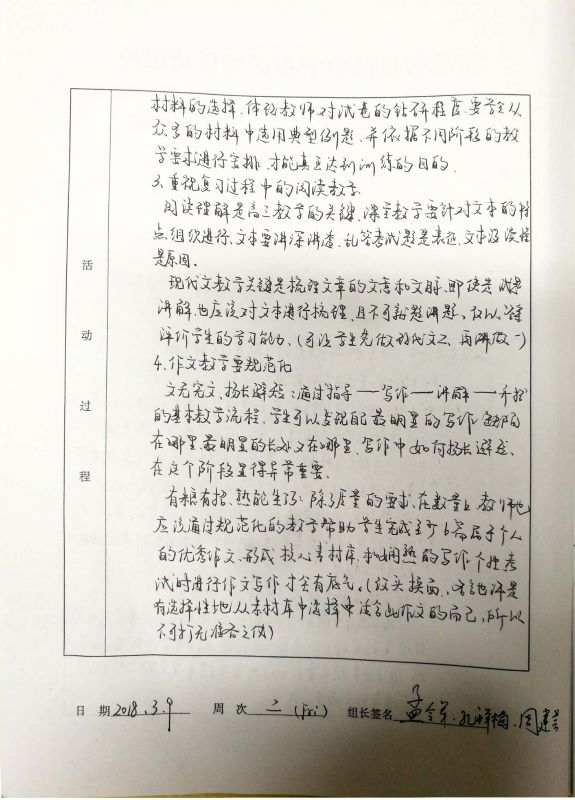 材料的选择,体现教师对试卷的钻研程度,要学会从
众多的材料中选用典型例题,并依据不同阶段的教
学要求进行安排,才能真正达到训练的目的.
3、重视复习过程中的阅读教学
阅读理解是高三教学的关键,课堂教学要针对文本的特
点组织进行,文本要讲深讲透,乱答考试题是表征,文本没读懂
是原因。
现代文教学关键是梳理文章的文意和文脉,即使是试卷
讲解,也应该对文本进行梳理,且不可就题讲题,仅以
评价学生的学习能力,(可让学生先做现代文二,再做一)
4、作文教学要规范化
文无完文,扬长避短:通过指导——写作——讲解——升格
的基本教学流程,学生可以发现自己最明显的写作缺陷
在哪里,最明显的长处又在哪里,写作中如何扬长避短,
在这个阶段显得异常重要.
有粮有招,熟能生巧:除了质量的要求,在数量上,教师也
应该通过规范化的教学帮助学生完成至少6篇属于个人
的优秀作文,形成核心素材库和娴熟的写作个性,考
试时进行作文写作才会有底气。(改头换面,
有选择性地从素材库中选择适合此作文的而已,所以
不打无准备之仗)
活
动
过
程
日 期 2018.3.9 周 次 二 (Fri) 组长签名 孟令军、孔祥梅、周建芸